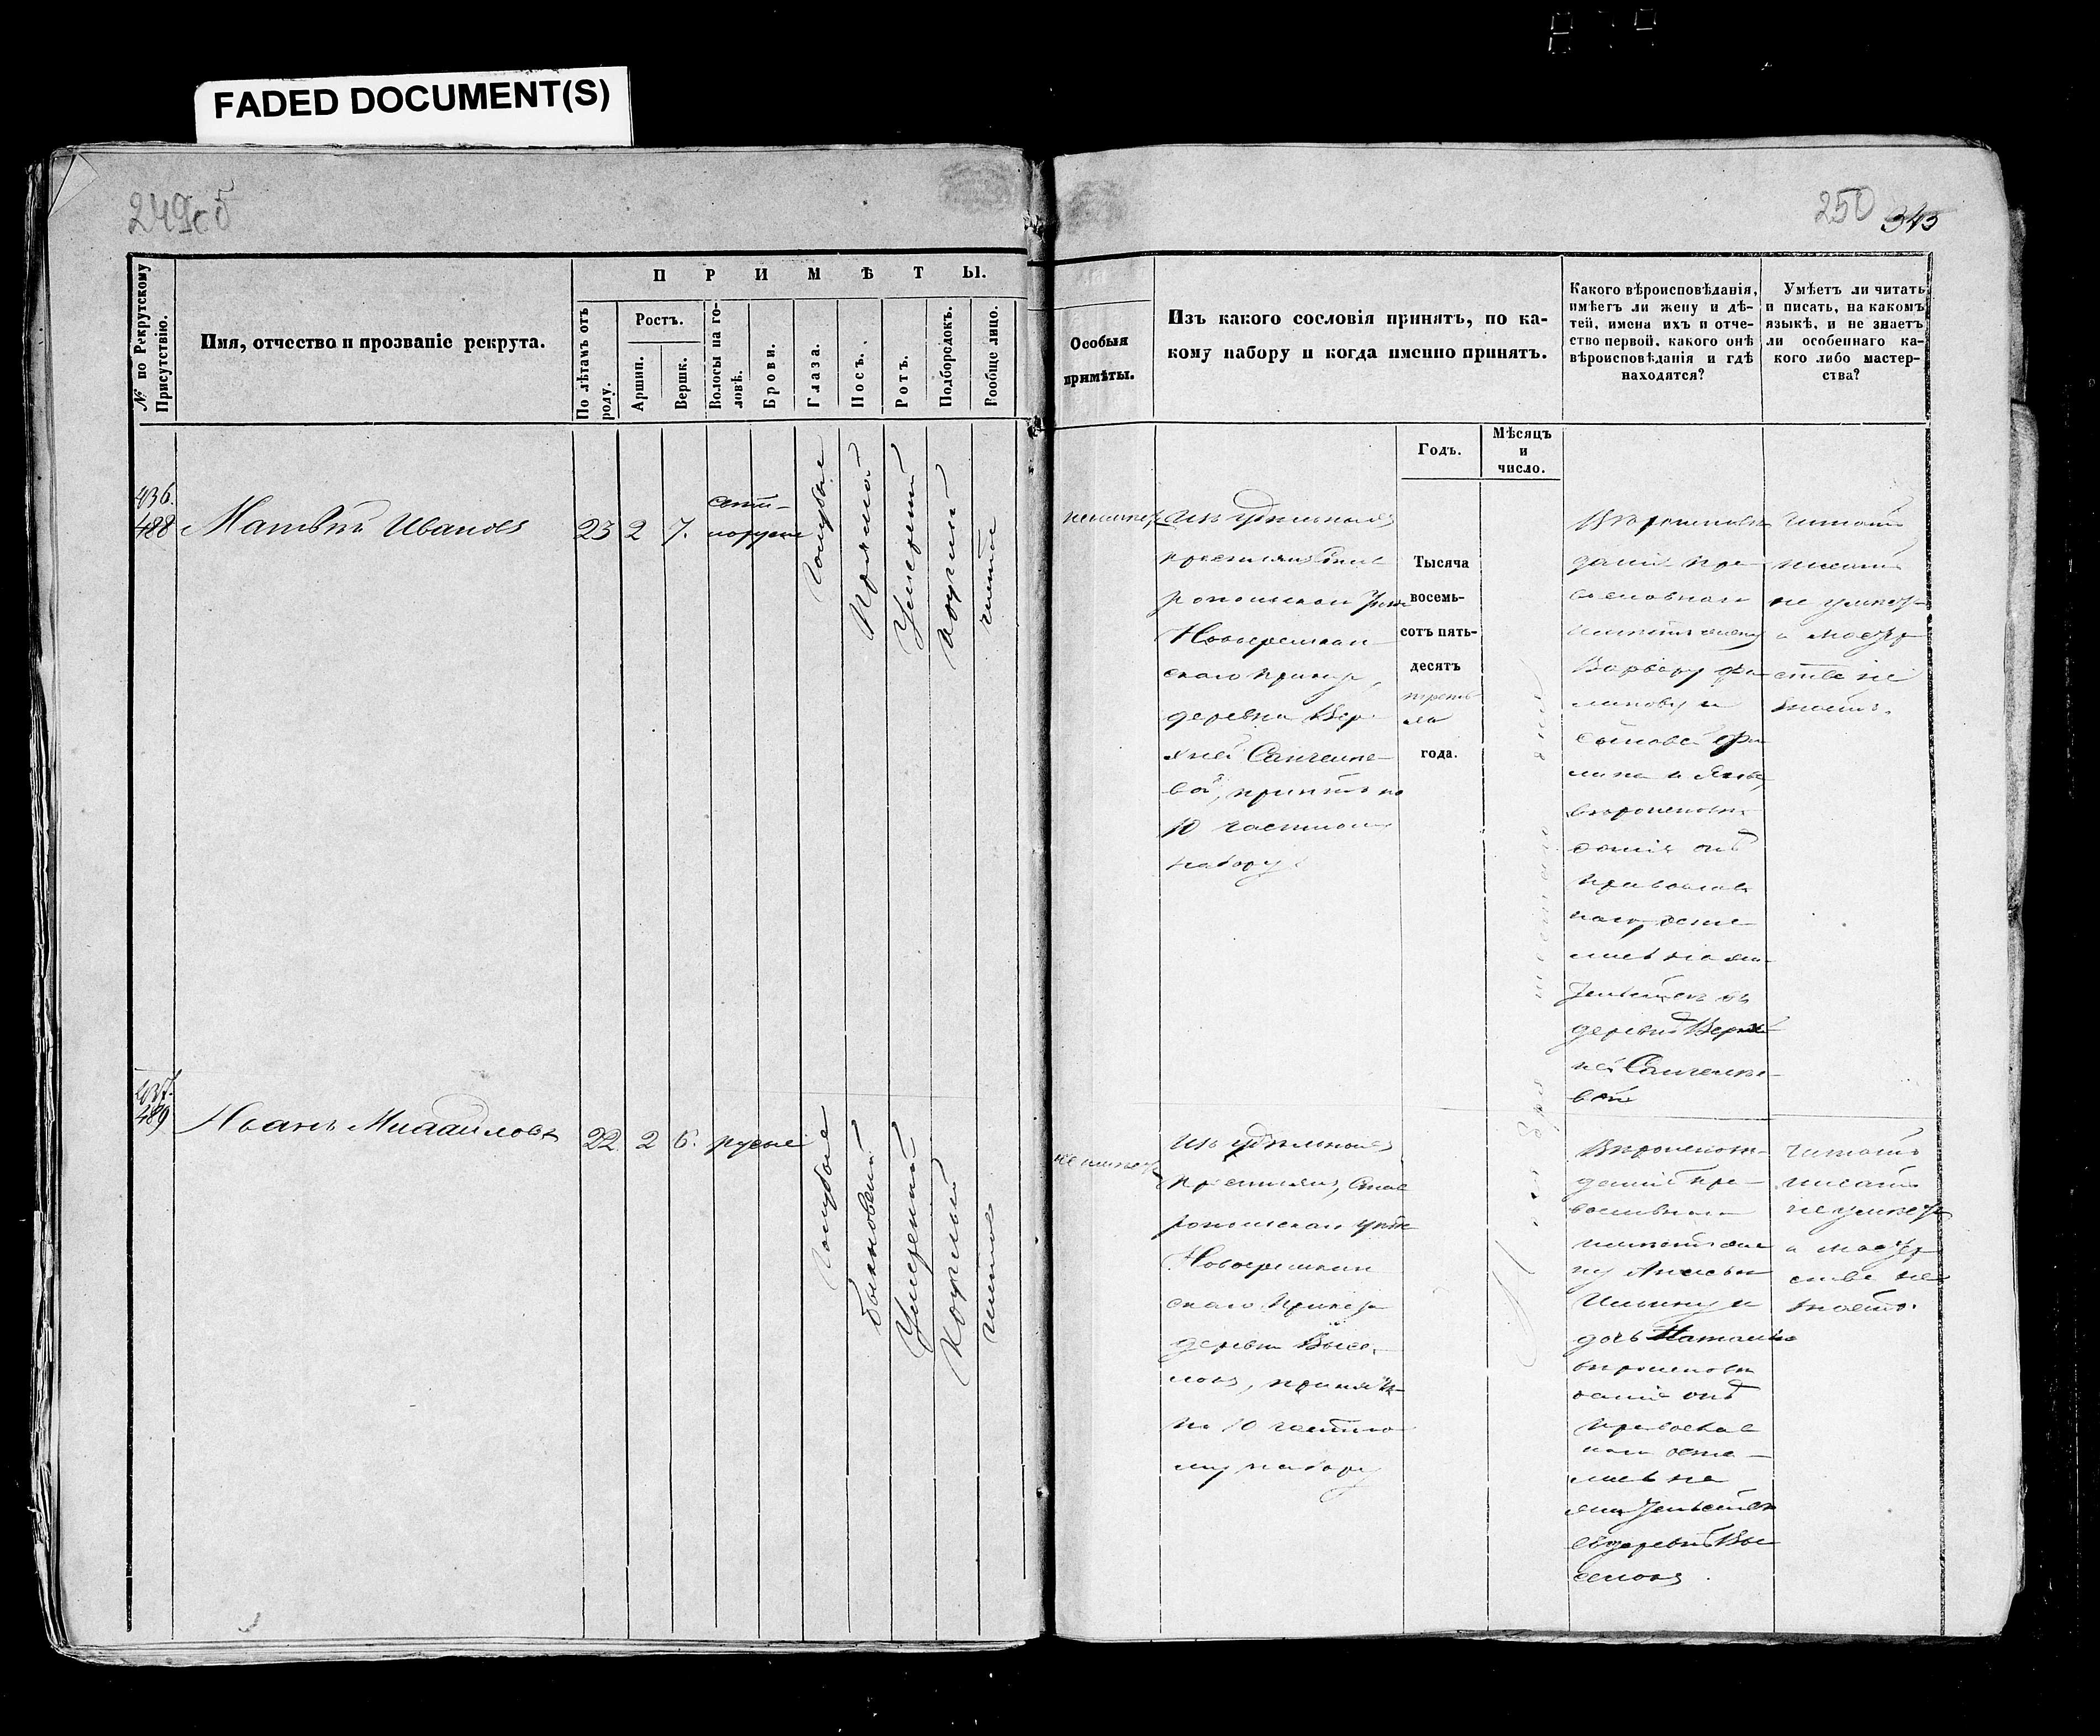 FADED DOCUMENT(S)
249об
250 345
№ по Рекрутскому Присутствію.
Имя, отчество и прозваніе рекрута.
ПРИМѢТЫ.
По лѣтамъ отъ роду.
Ростъ.
Аршин.
Вершк.
Волосы на головѣ.
Брови.
Глаза.
Носъ.
Ротъ.
Подбородокъ.
Вообще лицо.
Особыя
примѣты.
Изъ какого сословія принятъ, по ка-
кому набору и когда именно принятъ.
Какого вѣроисповѣданія,
имѣетъ ли жену и дѣ-
тей, имена ихъ и отче-
ство первой, какого онѣ
вѣроисповѣданія и гдѣ
находятся?
Умѣетъ ли читать
и писать, на какомъ
языкѣ, и не знаетъ
ли особеннаго ка-
кого либо мастер-
ства?
Годъ.
Мѣсяцъ
и
число.
436.
488
Матвѣй Ивановъ
23 2 7.
свѣтло-
русые
голубые
прямой
умеренный
круглый
чистое
не имѣетъ
Изъ удѣльныхъ
крестьянъ Став
ропольскаго уѣзда
Новоеремкин
скаго приказа,
деревни Вер-
хней Санчеле-
вой, принятъ по
10 частному
набору.
Тысяча
восемь-
сотъ пять-
десятъ
треть
яго
года.
Вѣроисповѣ
данія пра-
вославнаго
имѣетъ жену
Варвару Фи-
липову и
сыновей Фи-
липа и Якова,
вѣроисповѣ
данія онѣ
православ
наго, оста
лись на жи-
тельствѣ въ
деревнѣ Верх
ней Санчеле-
вой
читать
писать
не умѣетъ
а мастер
ства не
знаетъ.
437.
489
Иванъ Михайловъ
22 2 6. русые
голубые
обыкновенный
умеренный
круглый
чистое
не имѣетъ
Изъ удѣльныхъ
крестьянъ, Став
ропольскаго уѣзда
Новоеремкин
скаго приказа
деревни Высе-
локъ, принятъ
по 10 частно
му набору
Вѣроисповѣ-
данія пра-
вославнаго
имѣетъ же
ну
Ильину и
дочь Наталью
вѣроисповѣ
данія онѣ
православ
наго оста-
лись на
жительствѣ
въ деревнѣ Вы
селокъ.
читать
писать
не умѣетъ
а мастер
ства не
знаетъ.